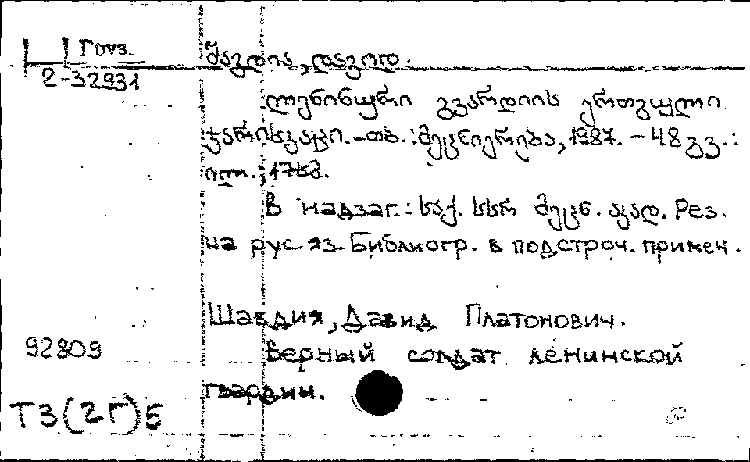 Груз.
2-32931
შავდია, დავით.
ლენინური გვარდიის ერთგული
ჯარისკაცი. - თბ. : მეცნიერება, 1987. - 48 გვ. :
ილ. ; 17 см.
В надзаг. : საქ. სსრ მეცნ. აკად. Рез.
на рус. яз. Библиогр. в подстроч. примеч.
Шавдия, Давид Платонович.
Верный солдат ленинской
гвардии.
92809
Т3(2Г)6